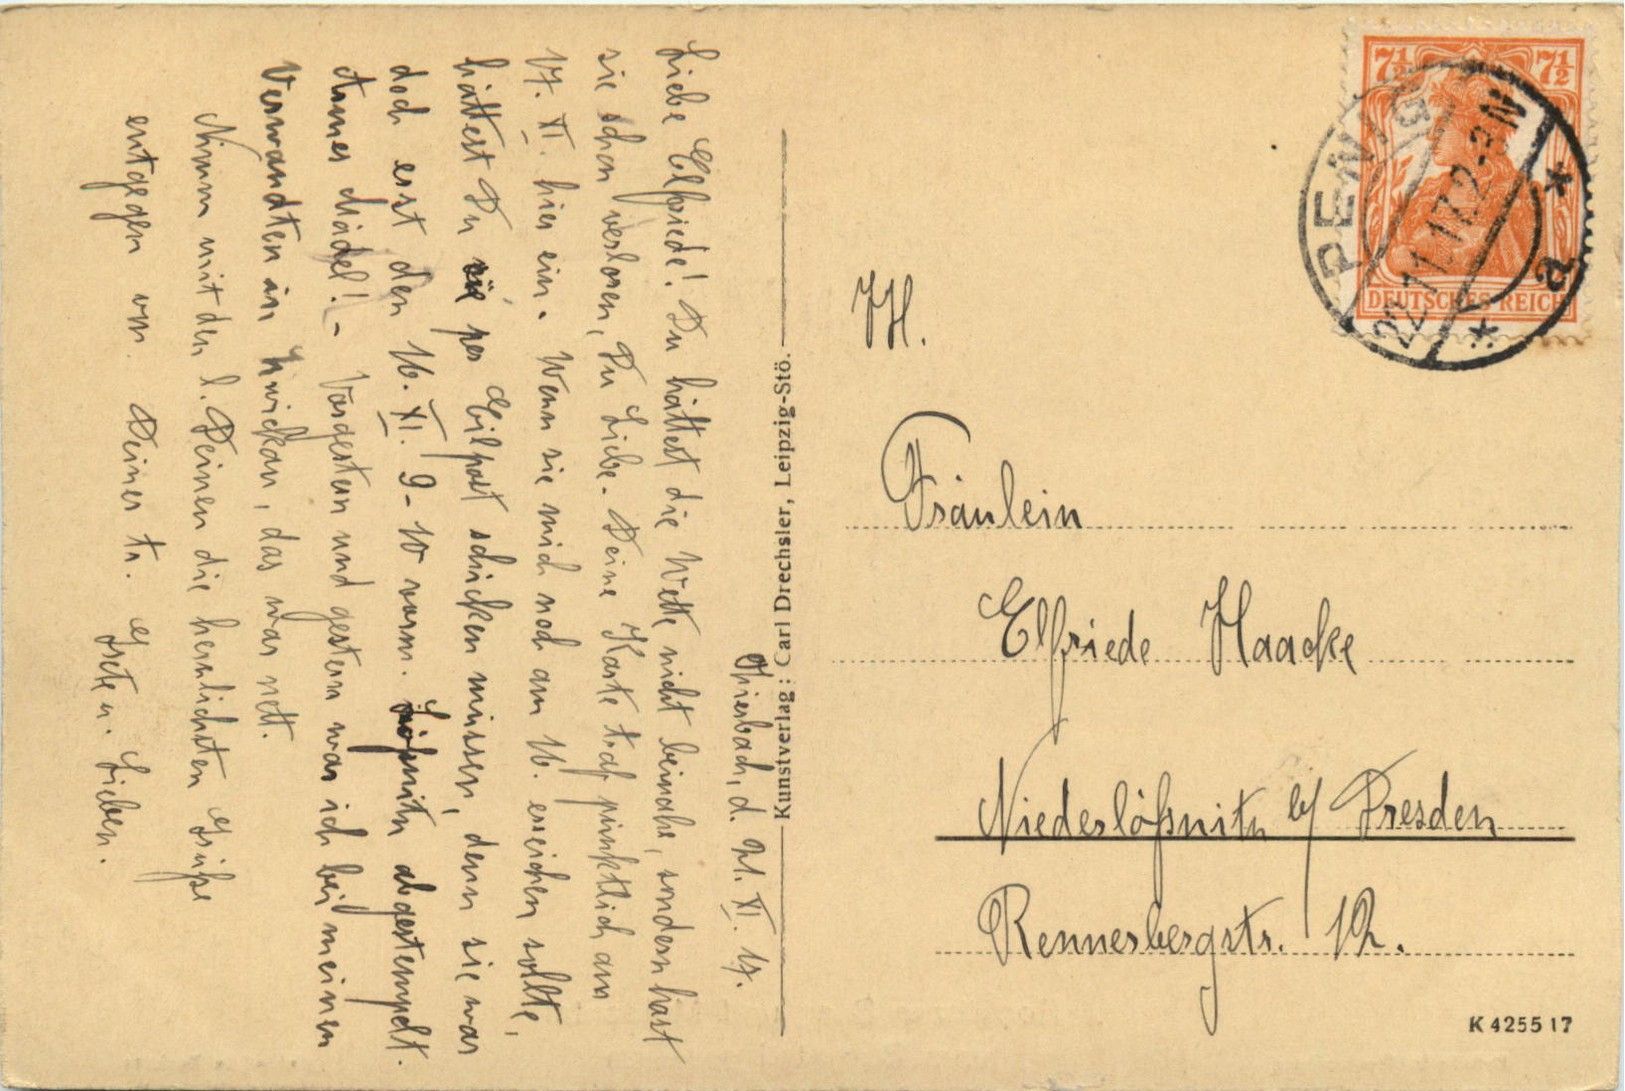 d. 21. XI. 17.
Liebe Elfriede! Du hättest die Wette nicht beinahe, sondern hast
sie schon verloren, Du Liebe. Deine Karte traf pünktlich am
17. XI. hier ein. Wenn sie mich noch am 16. erreichen sollte,
hättest Du sie per Eilpost schicken müssen, denn sie war
doch erst den 16. XI. 9-10 vorm. Lößnitz abgestempelt.
Armes Mädel! - Vorgestern und gestern war ich bei meinen
Verwandten in Zwickau, das war nett.
Nimm mit den l. Deinen die herzlichsten Grüße
entgegen von Deiner tr. Grete u. Lieben.
Kunstverlag: Carl Drechsler, Leipzig-Stö.
7½ 7½
DEUTSCHES REICH
PENIG
22.11.17.2-3N
* a *
Fräulein
Elfriede Haacke
Niederlößnitz b/ Dresden
Rennerbergstr. 12.
K 4255 17